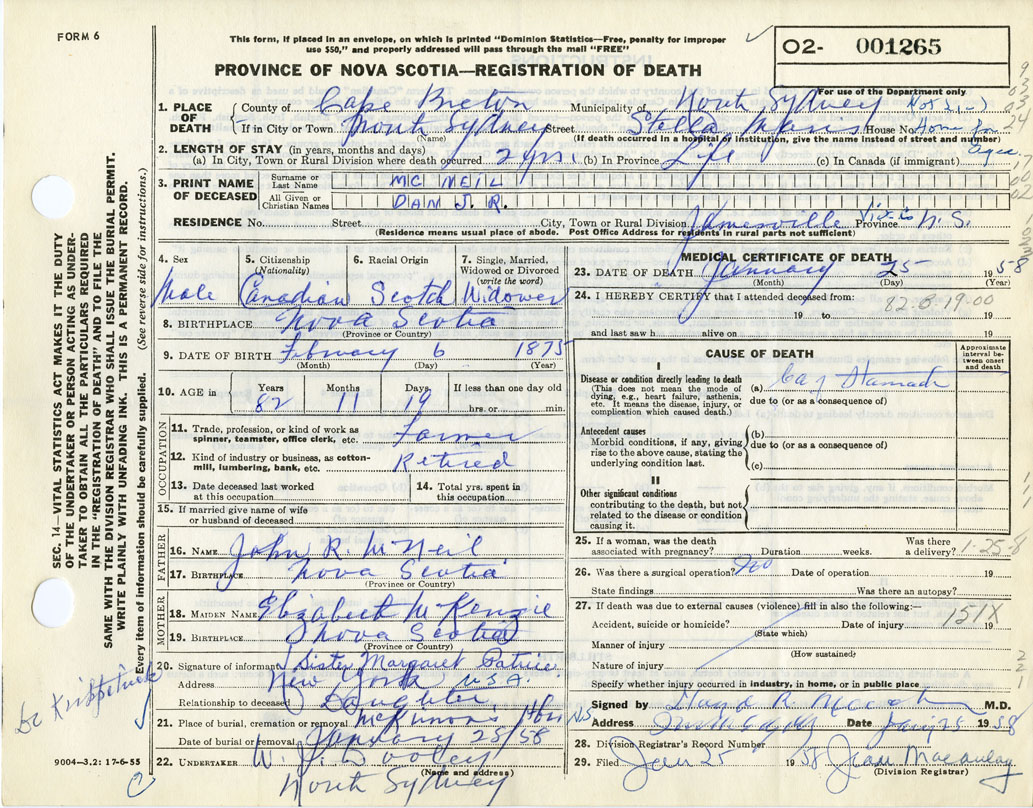 FORM 6
This form, if placed in an envelope, on which is printed "Dominion Statistics—Free, penalty for improper
use $50," and properly addressed will pass through the mail "FREE"
O2- 001265
For use of the Department only
PROVINCE OF NOVA SCOTIA—REGISTRATION OF DEATH
1. PLACE OF DEATH
County of Cape Breton Municipality of North Sydney
If in City or Town North Sydney Street Stella Maris House No. Home for Aged
(Name) (If death occurred in a hospital or institution, give the name instead of street and number)
2. LENGTH OF STAY (in years, months and days)
(a) In City, Town or Rural Division where death occurred 2 yrs. (b) In Province Life (c) In Canada (if immigrant)
3. PRINT NAME OF DECEASED
Surname or Last Name MC NEIL
All Given or Christian Names DAN J.R.
RESIDENCE No. Street City, Town or Rural Division Jamesville Province N.S.
(Residence means usual place of abode. Post Office Address for residents in rural parts not sufficient)
4. Sex Male
5. Citizenship (Nationality) Canadian
6. Racial Origin Scotch
7. Single, Married, Widowed or Divorced (write the word) Widower
8. BIRTHPLACE Nova Scotia
(Province or Country)
9. DATE OF BIRTH February 6 1875
(Month) (Day) (Year)
10. AGE in Years 82 Months 11 Days 19 If less than one day old hrs. or min.
OCCUPATION
11. Trade, profession, or kind of work as spinner, teamster, office clerk, etc. Farmer
12. Kind of industry or business, as cotton-mill, lumbering, bank, etc. Retired
13. Date deceased last worked at this occupation
14. Total yrs. spent in this occupation
15. If married give name of wife or husband of deceased
FATHER
16. NAME John R. McNeil
17. BIRTHPLACE Nova Scotia
(Province or Country)
MOTHER
18. MAIDEN NAME Elizabeth McKenzie
19. BIRTHPLACE Nova Scotia
(Province or Country)
20. Signature of informant Sister Margaret Patrice
Address New York, U.S.A.
Relationship to deceased Daughter
21. Place of burial, cremation or removal McKinnons Hbr NS
Date of burial or removal January 28/58
22. UNDERTAKER W. J. Dooley
(Name and address)
North Sydney
9004—3.2: 17-6-55
MEDICAL CERTIFICATE OF DEATH
23. DATE OF DEATH January 25 1958
(Month) (Day) (Year)
24. I HEREBY CERTIFY that I attended deceased from:
82-8-19-00
19 to 19
and last saw h alive on 19
CAUSE OF DEATH
Approximate interval between onset and death
I
Disease or condition directly leading to death
(This does not mean the mode of dying, e.g., heart failure, asthenia, etc. It means the disease, injury, or complication which caused death.)
(a) Ca of Stomach
due to (or as a consequence of)
Antecedent causes
Morbid conditions, if any, giving rise to the above cause, stating the underlying condition last.
(b)
due to (or as a consequence of)
(c)
II
Other significant conditions
contributing to the death, but not related to the disease or condition causing it.
25. If a woman, was the death associated with pregnancy? Duration weeks. Was there a delivery?
1-25-8
26. Was there a surgical operation? No Date of operation 19
State findings Was there an autopsy?
27. If death was due to external causes (violence) fill in also the following:—
Accident, suicide or homicide? Date of injury 19
151X
(State which)
Manner of injury
(How sustained)
Nature of injury
Specify whether injury occurred in industry, in home, or in public place
Signed by M.D.
Address Date Jany 25 1958
28. Division Registrar's Record Number
29. Filed Jan 25 1958 Jean Macaulay
(Division Registrar)
SEC. 14—VITAL STATISTICS ACT MAKES IT THE DUTY
OF THE UNDERTAKER OR PERSON ACTING AS UNDER-
TAKER TO OBTAIN ALL THE PARTICULARS REQUIRED
IN THE "REGISTRATION OF DEATH" AND TO FILE THE
SAME WITH THE DIVISION REGISTRAR WHO SHALL ISSUE THE BURIAL PERMIT.
WRITE PLAINLY WITH UNFADING INK. THIS IS A PERMANENT RECORD.
Every item of information should be carefully supplied. (See reverse side for instructions.)
Kirkpatrick